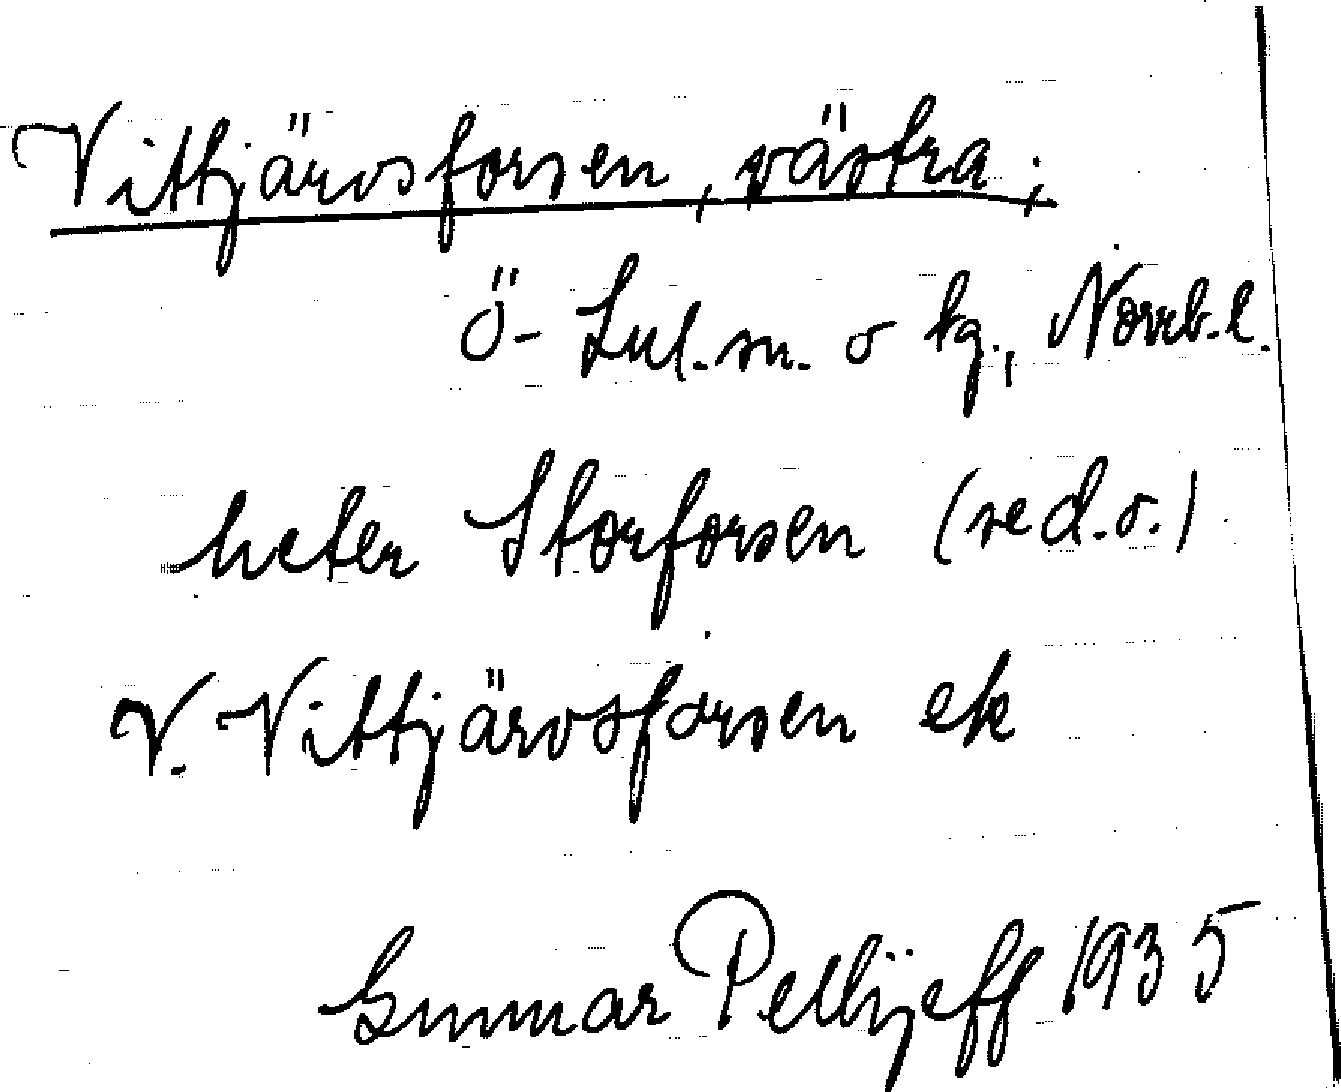 Vittjärvsforsen, västra,;
Ö- Lul. sn. o kg., Norrb. l.
heter Storforsen (se d.o.)
V. Vittjärvsforsen ek
Gunnar Pellijeff 1935